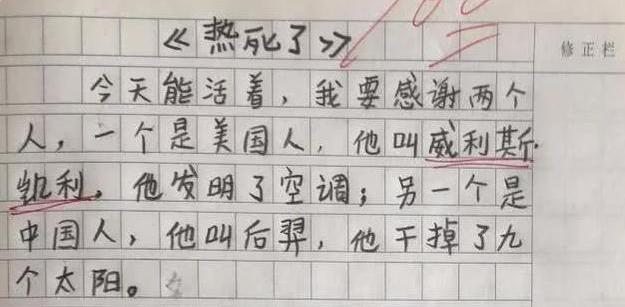 《热死了》
修正栏
今天能活着，我要感谢两个
人，一个是美国人，他叫威利斯·
凯利，他发明了空调；另一个是
中国人，他叫后羿，他干掉了九
个太阳。